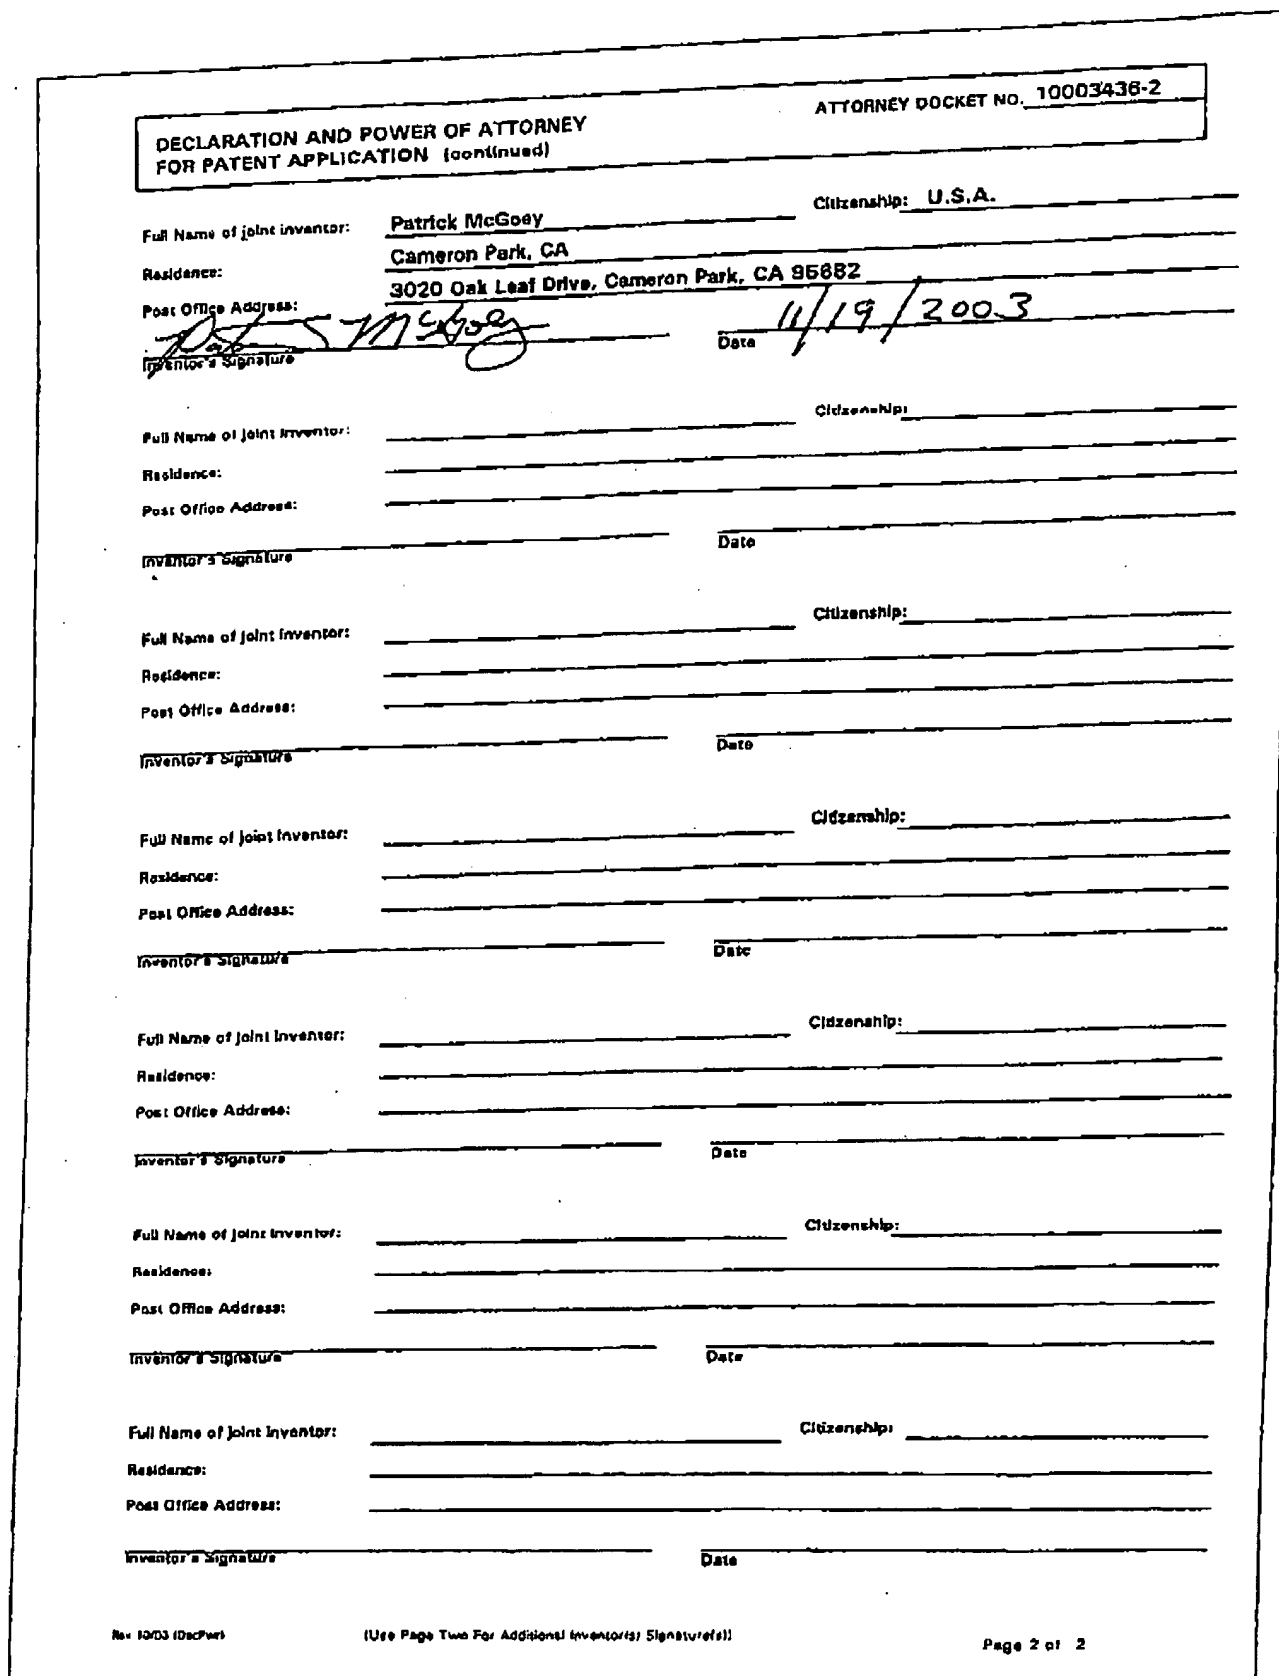 DECLARATION AND POWER OF ATTORNEY
FOR PATENT APPLICATION (continued)
ATTORNEY DOCKET NO. 10003436-2
Full Name of joint inventor: Patrick McGoey Citizenship: U.S.A.
Residence: Cameron Park, CA
Post Office Address: 3020 Oak Leaf Drive, Cameron Park, CA 95682
McGoey 11/19/2003
Inventor's Signature Date
Full Name of joint inventor: Citizenship:
Residence:
Post Office Address:
Inventor's Signature Date
Full Name of joint inventor: Citizenship:
Residence:
Post Office Address:
Inventor's Signature Date
Full Name of joint inventor: Citizenship:
Residence:
Post Office Address:
Inventor's Signature Date
Full Name of joint inventor: Citizenship:
Residence:
Post Office Address:
Inventor's Signature Date
Full Name of joint inventor: Citizenship:
Residence:
Post Office Address:
Inventor's Signature Date
Full Name of joint inventor: Citizenship:
Residence:
Post Office Address:
Inventor's Signature Date
Rev 10/03 (DecPwr) (Use Page Two For Additional Inventor(s) Signature(s)) Page 2 of 2